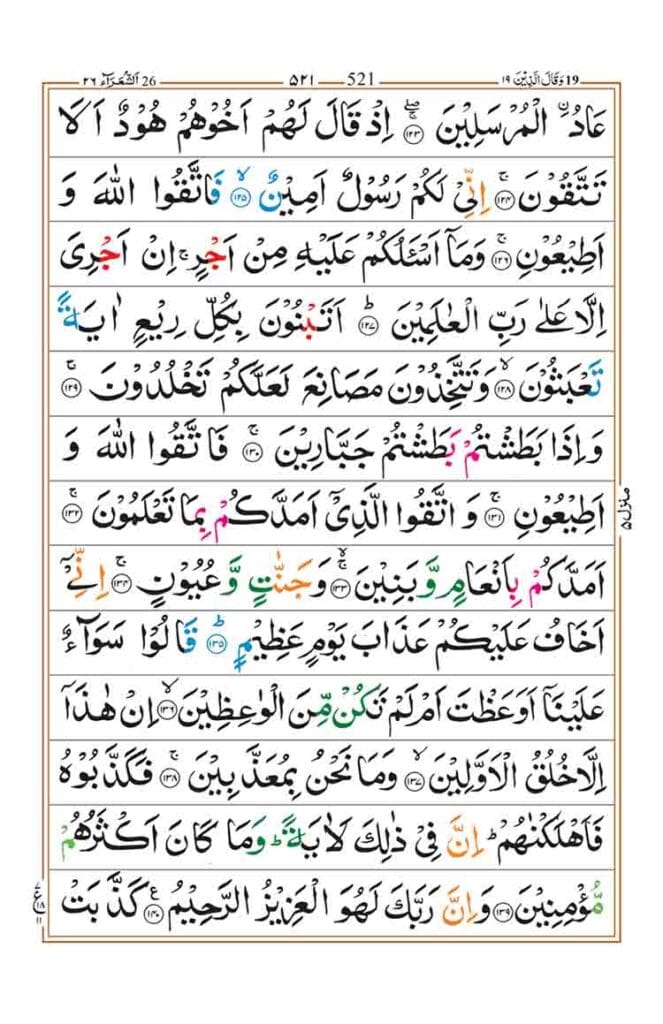 19 وَقَالَ الَّذِيْنَ ١٩ 521 ۵۲۱ 26 اَلشُّعَرَآء ٢٦
عَادُ ۨ الْمُرْسَلِيْنَ ۚۖ ۝۱۲۳ اِذْ قَالَ لَهُمْ اَخُوْهُمْ هُوْدٌ اَلَا
تَتَّقُوْنَ ۚ ۝۱۲۴ اِنِّيْ لَكُمْ رَسُوْلٌ اَمِيْنٌ ۙ ۝۱۲۵ فَاتَّقُوا اللّٰهَ وَ
اَطِيْعُوْنِ ۚ ۝۱۲۶ وَمَاۤ اَسْـَٔلُكُمْ عَلَيْهِ مِنْ اَجْرٍ ۚ اِنْ اَجْرِيَ
اِلَّا عَلٰى رَبِّ الْعٰلَمِيْنَ ؕ ۝۱۲۷ اَتَبْنُوْنَ بِكُلِّ رِيْعٍ اٰيَةً
تَعْبَثُوْنَ ۙ ۝۱۲۸ وَتَتَّخِذُوْنَ مَصَانِعَ لَعَلَّكُمْ تَخْلُدُوْنَ ۚ ۝۱۲۹
وَاِذَا بَطَشْتُمْ بَطَشْتُمْ جَبَّارِيْنَ ۚ ۝۱۳۰ فَاتَّقُوا اللّٰهَ وَ
اَطِيْعُوْنِ ۚ ۝۱۳۱ وَ اتَّقُوا الَّذِيْۤ اَمَدَّكُمْ بِمَا تَعْلَمُوْنَ ۚ ۝۱۳۲
اَمَدَّكُمْ بِاَنْعَامٍ وَّبَنِيْنَ ۚۙ ۝۱۳۳ وَجَنّٰتٍ وَّعُيُوْنٍ ۚ ۝۱۳۴ اِنِّيْۤ
اَخَافُ عَلَيْكُمْ عَذَابَ يَوْمٍ عَظِيْمٍ ؕ ۝۱۳۵ قَالُوْا سَوَآءٌ
عَلَيْنَاۤ اَوَعَظْتَ اَمْ لَمْ تَكُنْ مِّنَ الْوٰعِظِيْنَ ۙ ۝۱۳۶ اِنْ هٰذَاۤ
اِلَّا خُلُقُ الْاَوَّلِيْنَ ۙ ۝۱۳۷ وَمَا نَحْنُ بِمُعَذَّبِيْنَ ۚ ۝۱۳۸ فَكَذَّبُوْهُ
فَاَهْلَكْنٰهُمْ ؕ اِنَّ فِيْ ذٰلِكَ لَاٰيَةً ؕ وَمَا كَانَ اَكْثَرُهُمْ
مُّؤْمِنِيْنَ ۝۱۳۹ وَاِنَّ رَبَّكَ لَهُوَ الْعَزِيْزُ الرَّحِيْمُ ۠ ۝۱۴۰ كَذَّبَتْ
منزل ۵
ع ۱۸ ۱۱